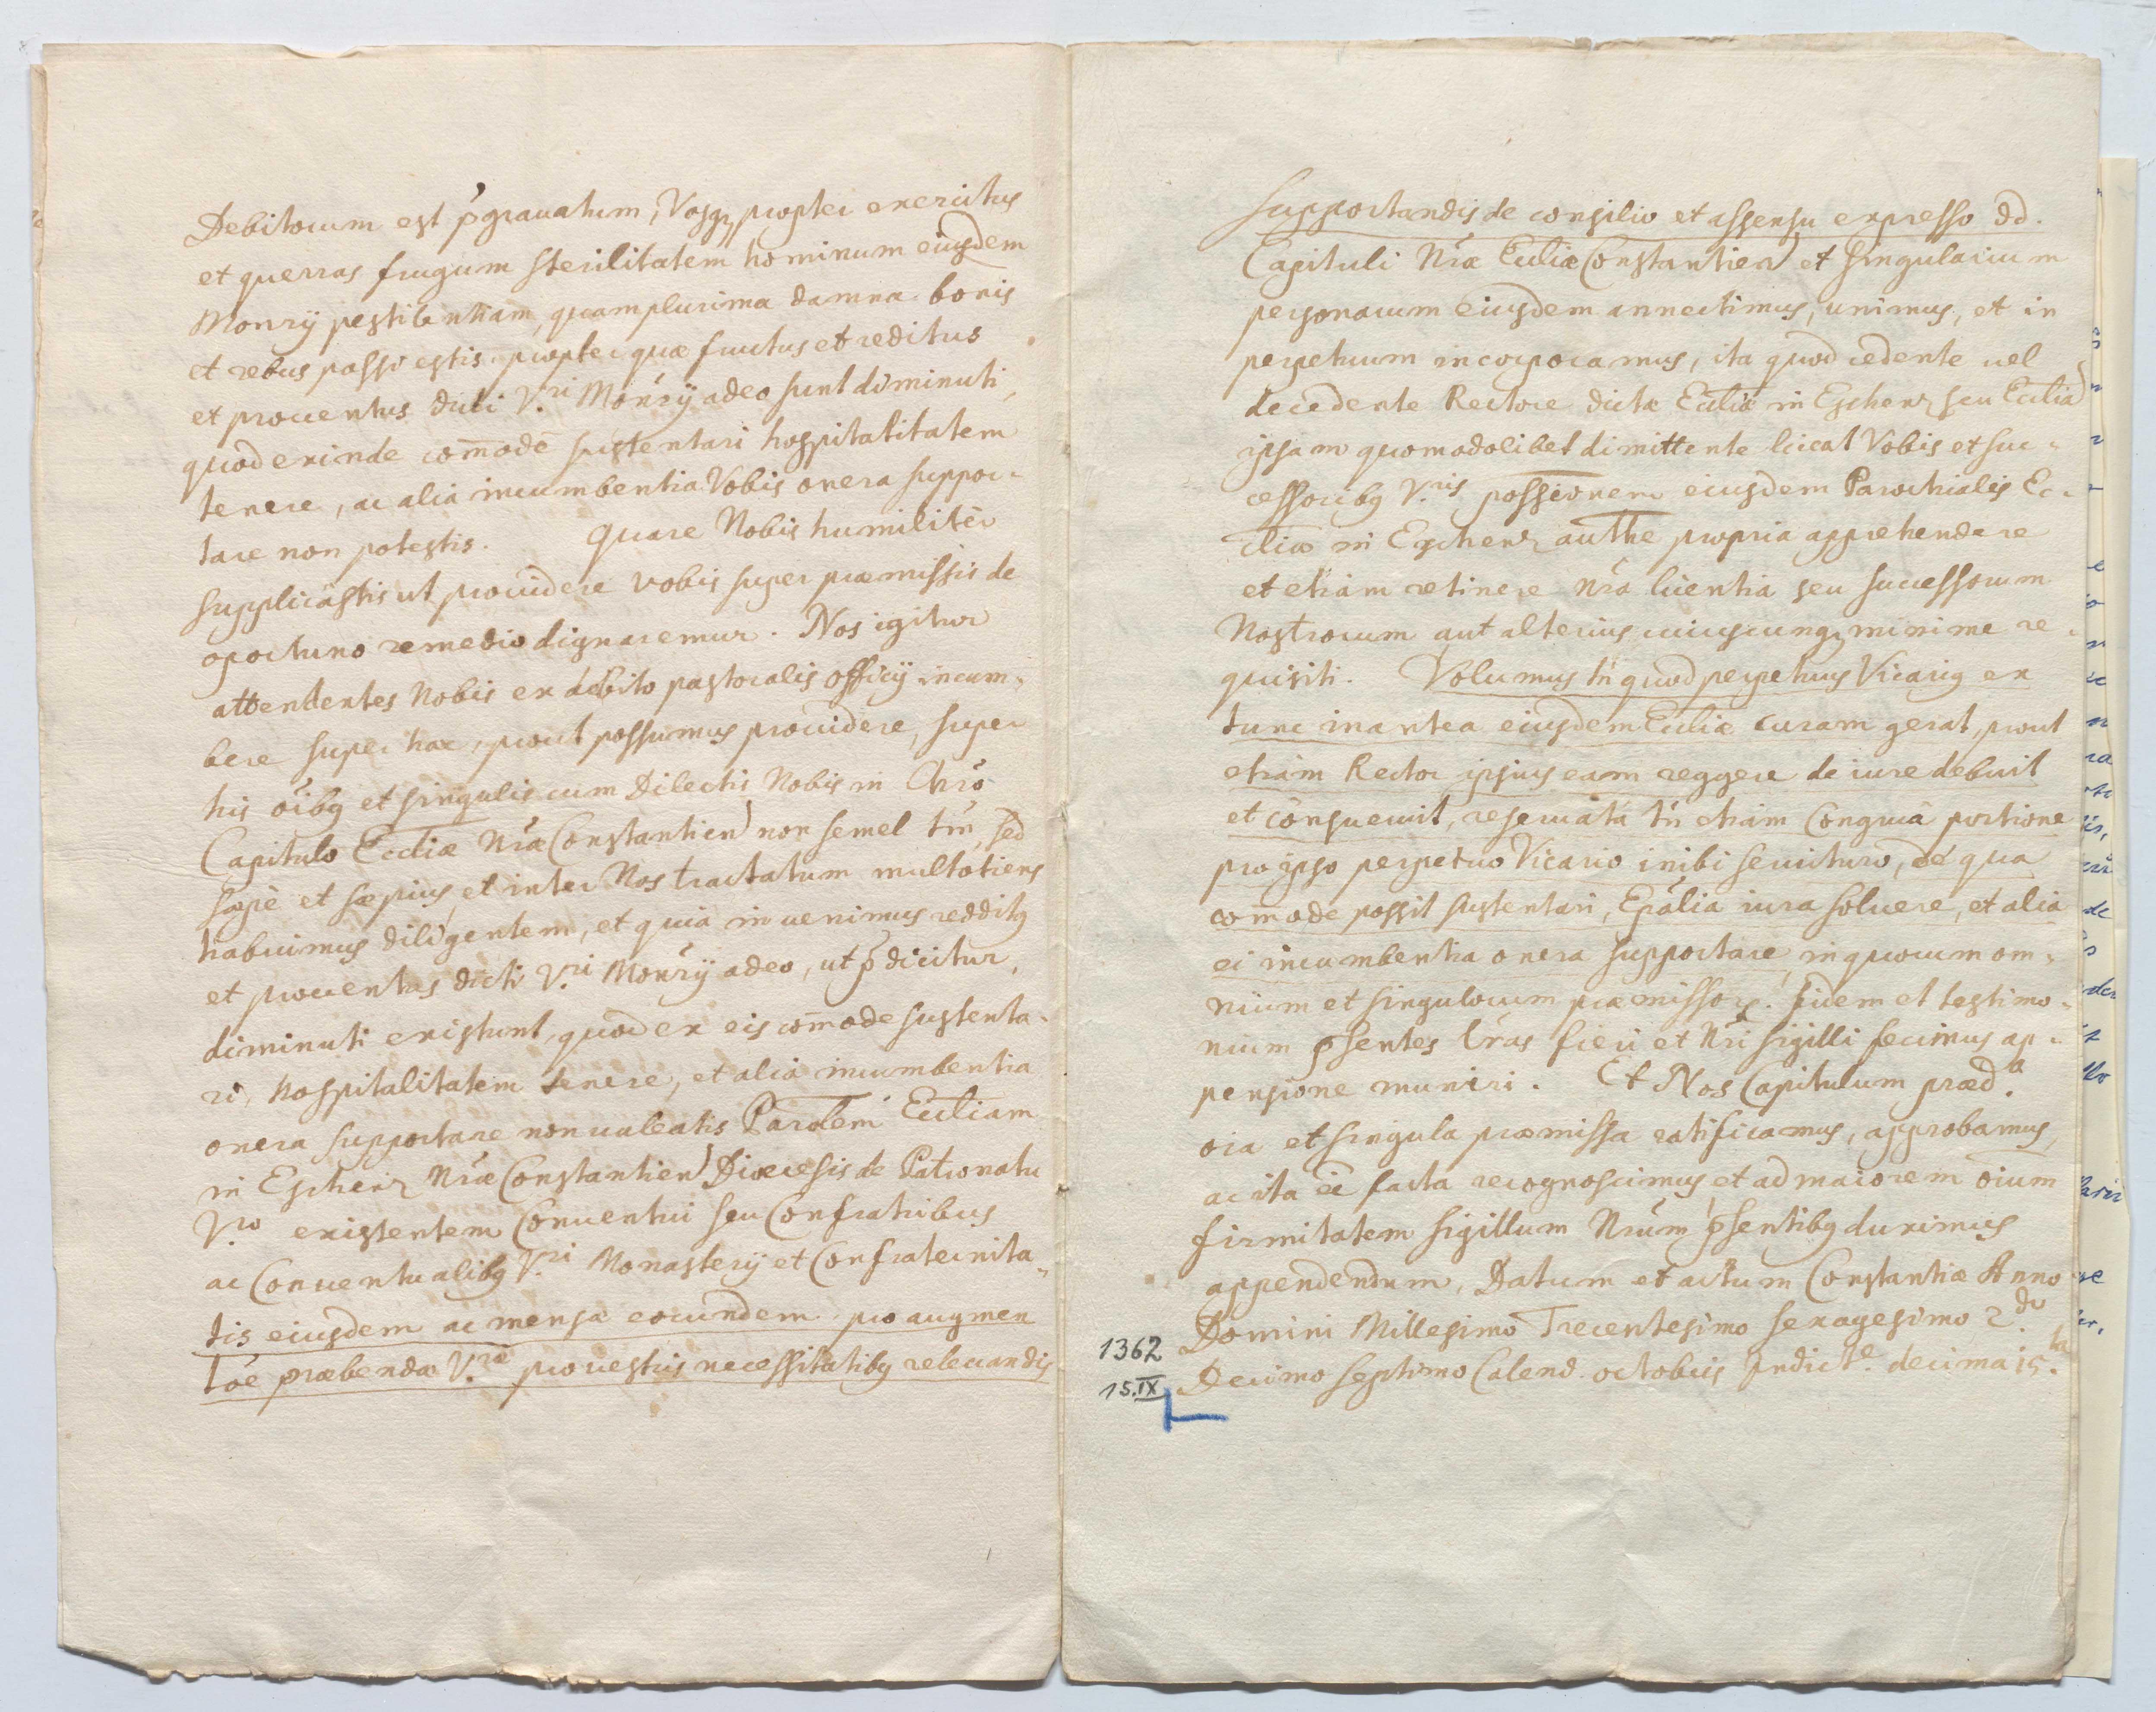 Debitorum est p̄gravatum, Vosq₃ propter exercitus
et guerras frugum sterilitatem hominum eiusdem
Monrÿ pestilentiam, quamplurima damna bonis
et rebus passi estis. propter quæ fructus et reditus
et proventus dicti V.ri Monrÿ adeo sunt diminuti,
quod exinde com̄odē sustentari hospitalitatem
tenere, ac alia incumbentia Vobis onera suppor-
tare non potestis. Quare Nobis humilitèr
supplicastis ut providere vobis super præmissis de
oportuno remedio dignaremur. Nos igitur
attendentes Nobis ex debito pastoralis officÿ incum-
bere super hac, prout possumus providere, super
his oībq et singulis cum Dilectis Nobis in Chrō
Capitulo Eccliæ Nræ Constantien) non semel tm̄, sed
sæpè et sæpius, et inter Nos tractatum multotiens
habuimus diligentem, et quia invenimus redditq
et proventus dicti V.ri Monrÿ adeo, ut p̄dicitur,
diminuti existunt, quod ex eis com̄ode sustenta-
ri, Hospitalitatem tenere, et alia incumbentia
onera supportare non valeatis Parōlem Eccliam
in Eschenz Nræ Constantien) Diœcesis de Patronatu
V.ro existentem Conventui seu Confratribus
ac Conventualibq V.ri Monasterÿ et Confraternita-
tis eiusdem ac mensæ eorundem pro augmen
tōe præbendæ V.ræ pro vestris necessitatibq relevandis
supportandis de consilio et assensu expresso dd.
Capituli Nræ Eccliæ Constantien) et singularium
personarum eiusdem annectimus, unimus, et in
perpetuum incorporamus, ita quod cedente vel
decedente Rectore dictæ Eccliæ in Eschenz seu Eccliā
ipsam quomodolibet dimittente liceat Vobis et suc-
cessoribq V.ris possionem eiusdem Parochialis Ec-
cliæ in Eschenz authe propria apprehendere
et etiam retinere nrā licentia seu successorum
Nostrorum aut alterius cuiuscunq₃ minime re-
quisiti. Volumus tn̄ quod perpetuus Vicariq ex
tunc in antea eiusdem Eccliæ curam gerat, prout
etiam Rector ipsius eam reggere de iure debuit
et consuevit, reservatâ tn̄ etiam Congruâ portione
pro ipso perpetuo Vicario inibi servituro, de qua
com̄ode possit sustentari, Epālia iura solvere, et alia
ei incumbentia onera supportare, in quorum om-
nium et singulorum præmissor₃. fidem et testimo-
nium p̄sentes l̄ras fieri et Nri sigilli fecimus ap-
pensione muniri. Et Nos Capitulum præd.a
oīa et singula præmissa ratificamus, approbamus,
ac ita ēē facta recognoscimus et ad maiorem oīum
firmitatem sigillum Nrūm p̄sentibq duximus
appendendum, Datum et actum Constantiæ Anno
Domini Millesimo Trecentesimo sexagesimo 2.do
1362
Decimo septimo Calend. octobris Indict.e decima 15.ta
15.IX